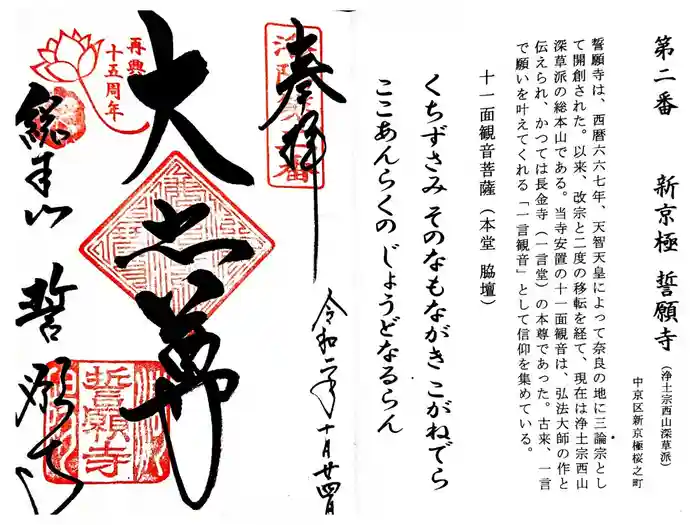 第二番　新京極 誓願寺（浄土宗西山深草派）
中京区新京極桜之町
誓願寺は、西暦六六七年、天智天皇によって奈良の地に三論宗とし
て開創された。以来、改宗と二度の移転を経て、現在は浄土宗西山
深草派の総本山である。当寺安置の十一面観音は、弘法大師の作と
伝えられ、かつては長金寺（一言堂）の本尊であった。古来、一言
で願いを叶えてくれる「一言観音」として信仰を集めている。
十一面観音菩薩（本堂 脇壇）
くちずさみ そのなもながき こがねでら
ここあんらくの じょうどなるらん
奉拝
令和二年十月廿四日
大悲尊
再興
十五周年
総本山 誓願寺
誓願寺